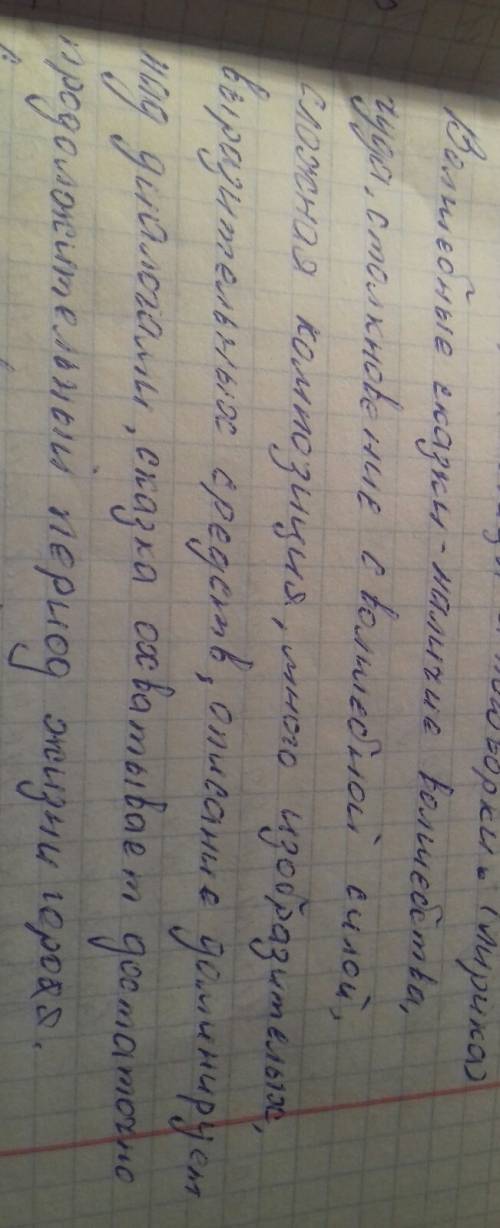 поговорки. (лирика)
Волшебные сказки - наличие волшебства,
чуда, столкновение с волшебной силой,
сложная композиция, много изобразительных,
выразительных средств, описание доминирует
над диалогами, сказка охватывает достаточно
продолжительный период жизни героев.